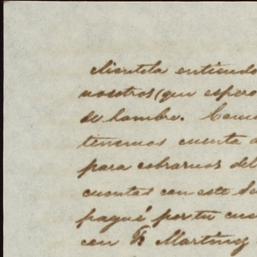 clientela entiendo
nosotros (que espero
de hambre. Como
tenemos cuenta a
para cobrarnos del
cuentas con este de
pagué por tu cue
con F. Martinez